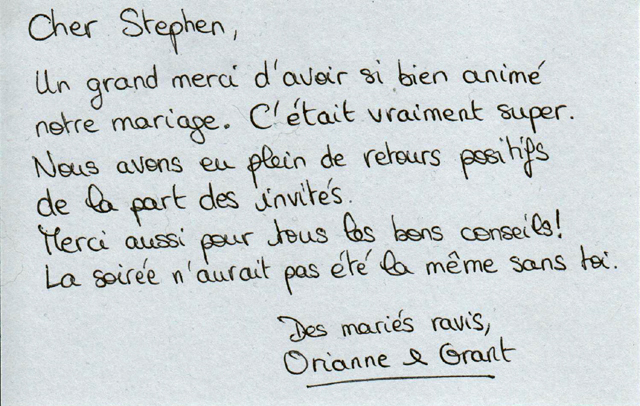 Cher Stephen,
Un grand merci d'avoir si bien animé
notre mariage. C'était vraiment super.
Nous avons eu plein de retours positifs
de la part des invités.
Merci aussi pour tous les bons conseils!
La soirée n'aurait pas été la même sans toi.
Des mariés ravis,
Orianne & Grant